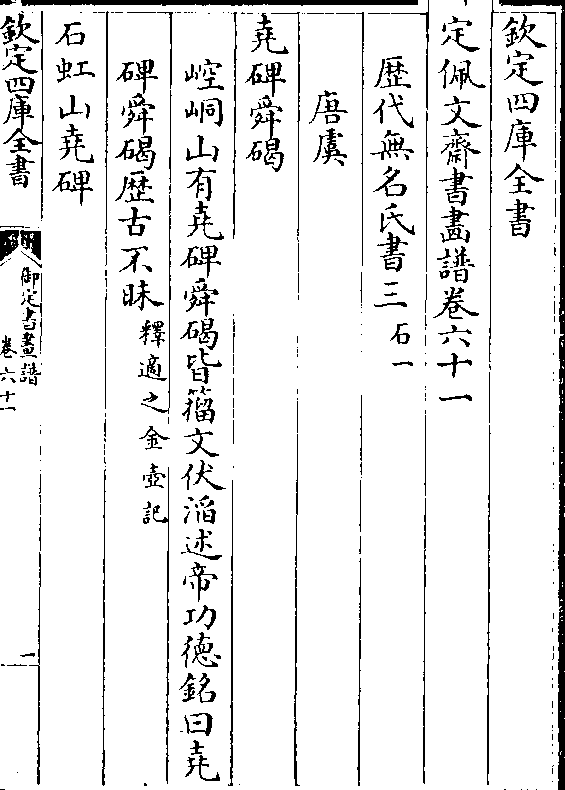 欽定四庫全書
定佩文齋書畫譜卷六十一
歴代無名氏書三石一
唐虞
堯碑舜碣
崆峒山有堯碑舜碣皆籀文伏滔述帝功徳銘曰堯
碑舜碣歴古不昧釋適之金壺記
石虹山堯碑
欽定四庫全書
御定書畫譜
卷六十一
一